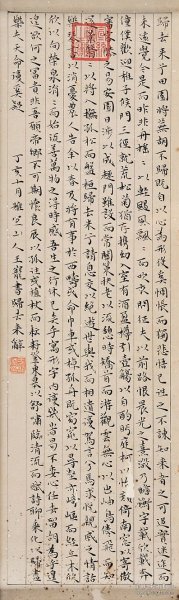 歸去來兮田園將蕪胡不歸既自以心為形役奚惆悵而獨悲悟已往之不諫知來者之可追實迷途而
未遠覺今是而昨非舟搖搖以輕颺風飄飄而吹衣問征夫以前路恨晨光之熹微乃瞻衡宇載欣載奔
僮僕歡迎稚子候門三徑就荒松菊猶存攜幼入室有酒盈樽引壺觴以自酌眄庭柯以怡顏倚南窗以寄傲
審容膝之易安園日涉以成趣門雖設而常關策扶老以流憩時矯首而遐觀雲無心以出岫鳥倦飛而知
還景翳翳以將入撫孤松而盤桓歸去來兮請息交以絕遊世與我而相遺復駕言兮焉求悅親戚之情話
樂琴書以消憂農人告余以春及將有事於西疇或命巾車或棹孤舟既窈窕以尋壑亦崎嶇而經丘木欣
欣以向榮泉涓涓而始流善萬物之得時感吾生之行休已矣乎寓形宇內復幾時曷不委心任去留胡為乎遑
遑欲何之富貴非吾願帝鄉不可期懷良辰以孤往或植杖而耘耔登東皋以舒嘯臨清流而賦詩聊乘化以歸盡
樂夫天命復奚疑 丁亥十月雅宜山人王寵書歸去來辭